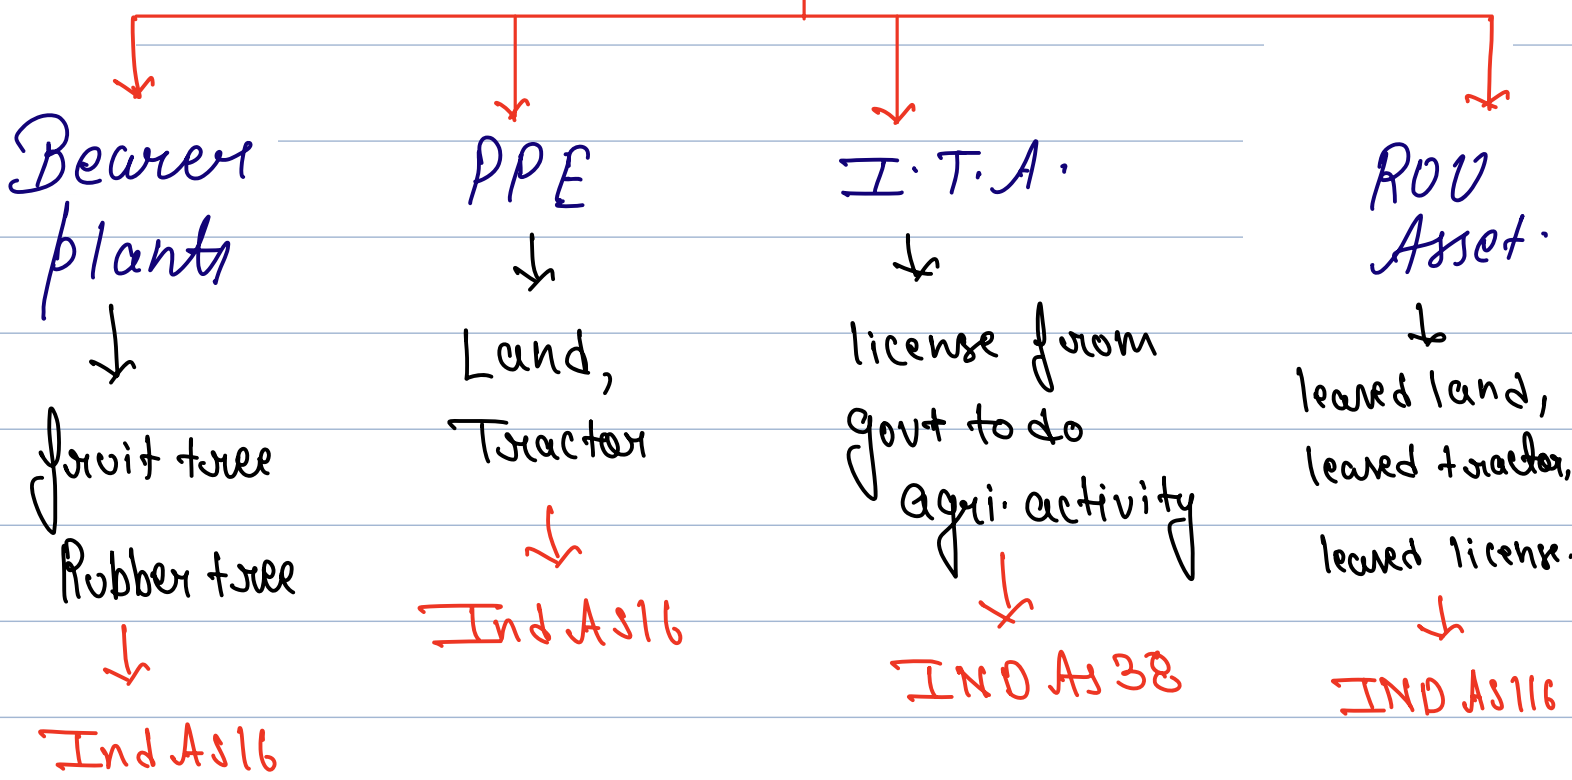 Bearer
plants
fruit tree
Rubber tree
Ind AS16
PPE
Land,
Tractor
Ind AS16
I.T.A.
license from
govt to do
agri. activity
IND AS 38
ROU
Asset.
leased land,
leased tractor,
leased license.
IND AS116